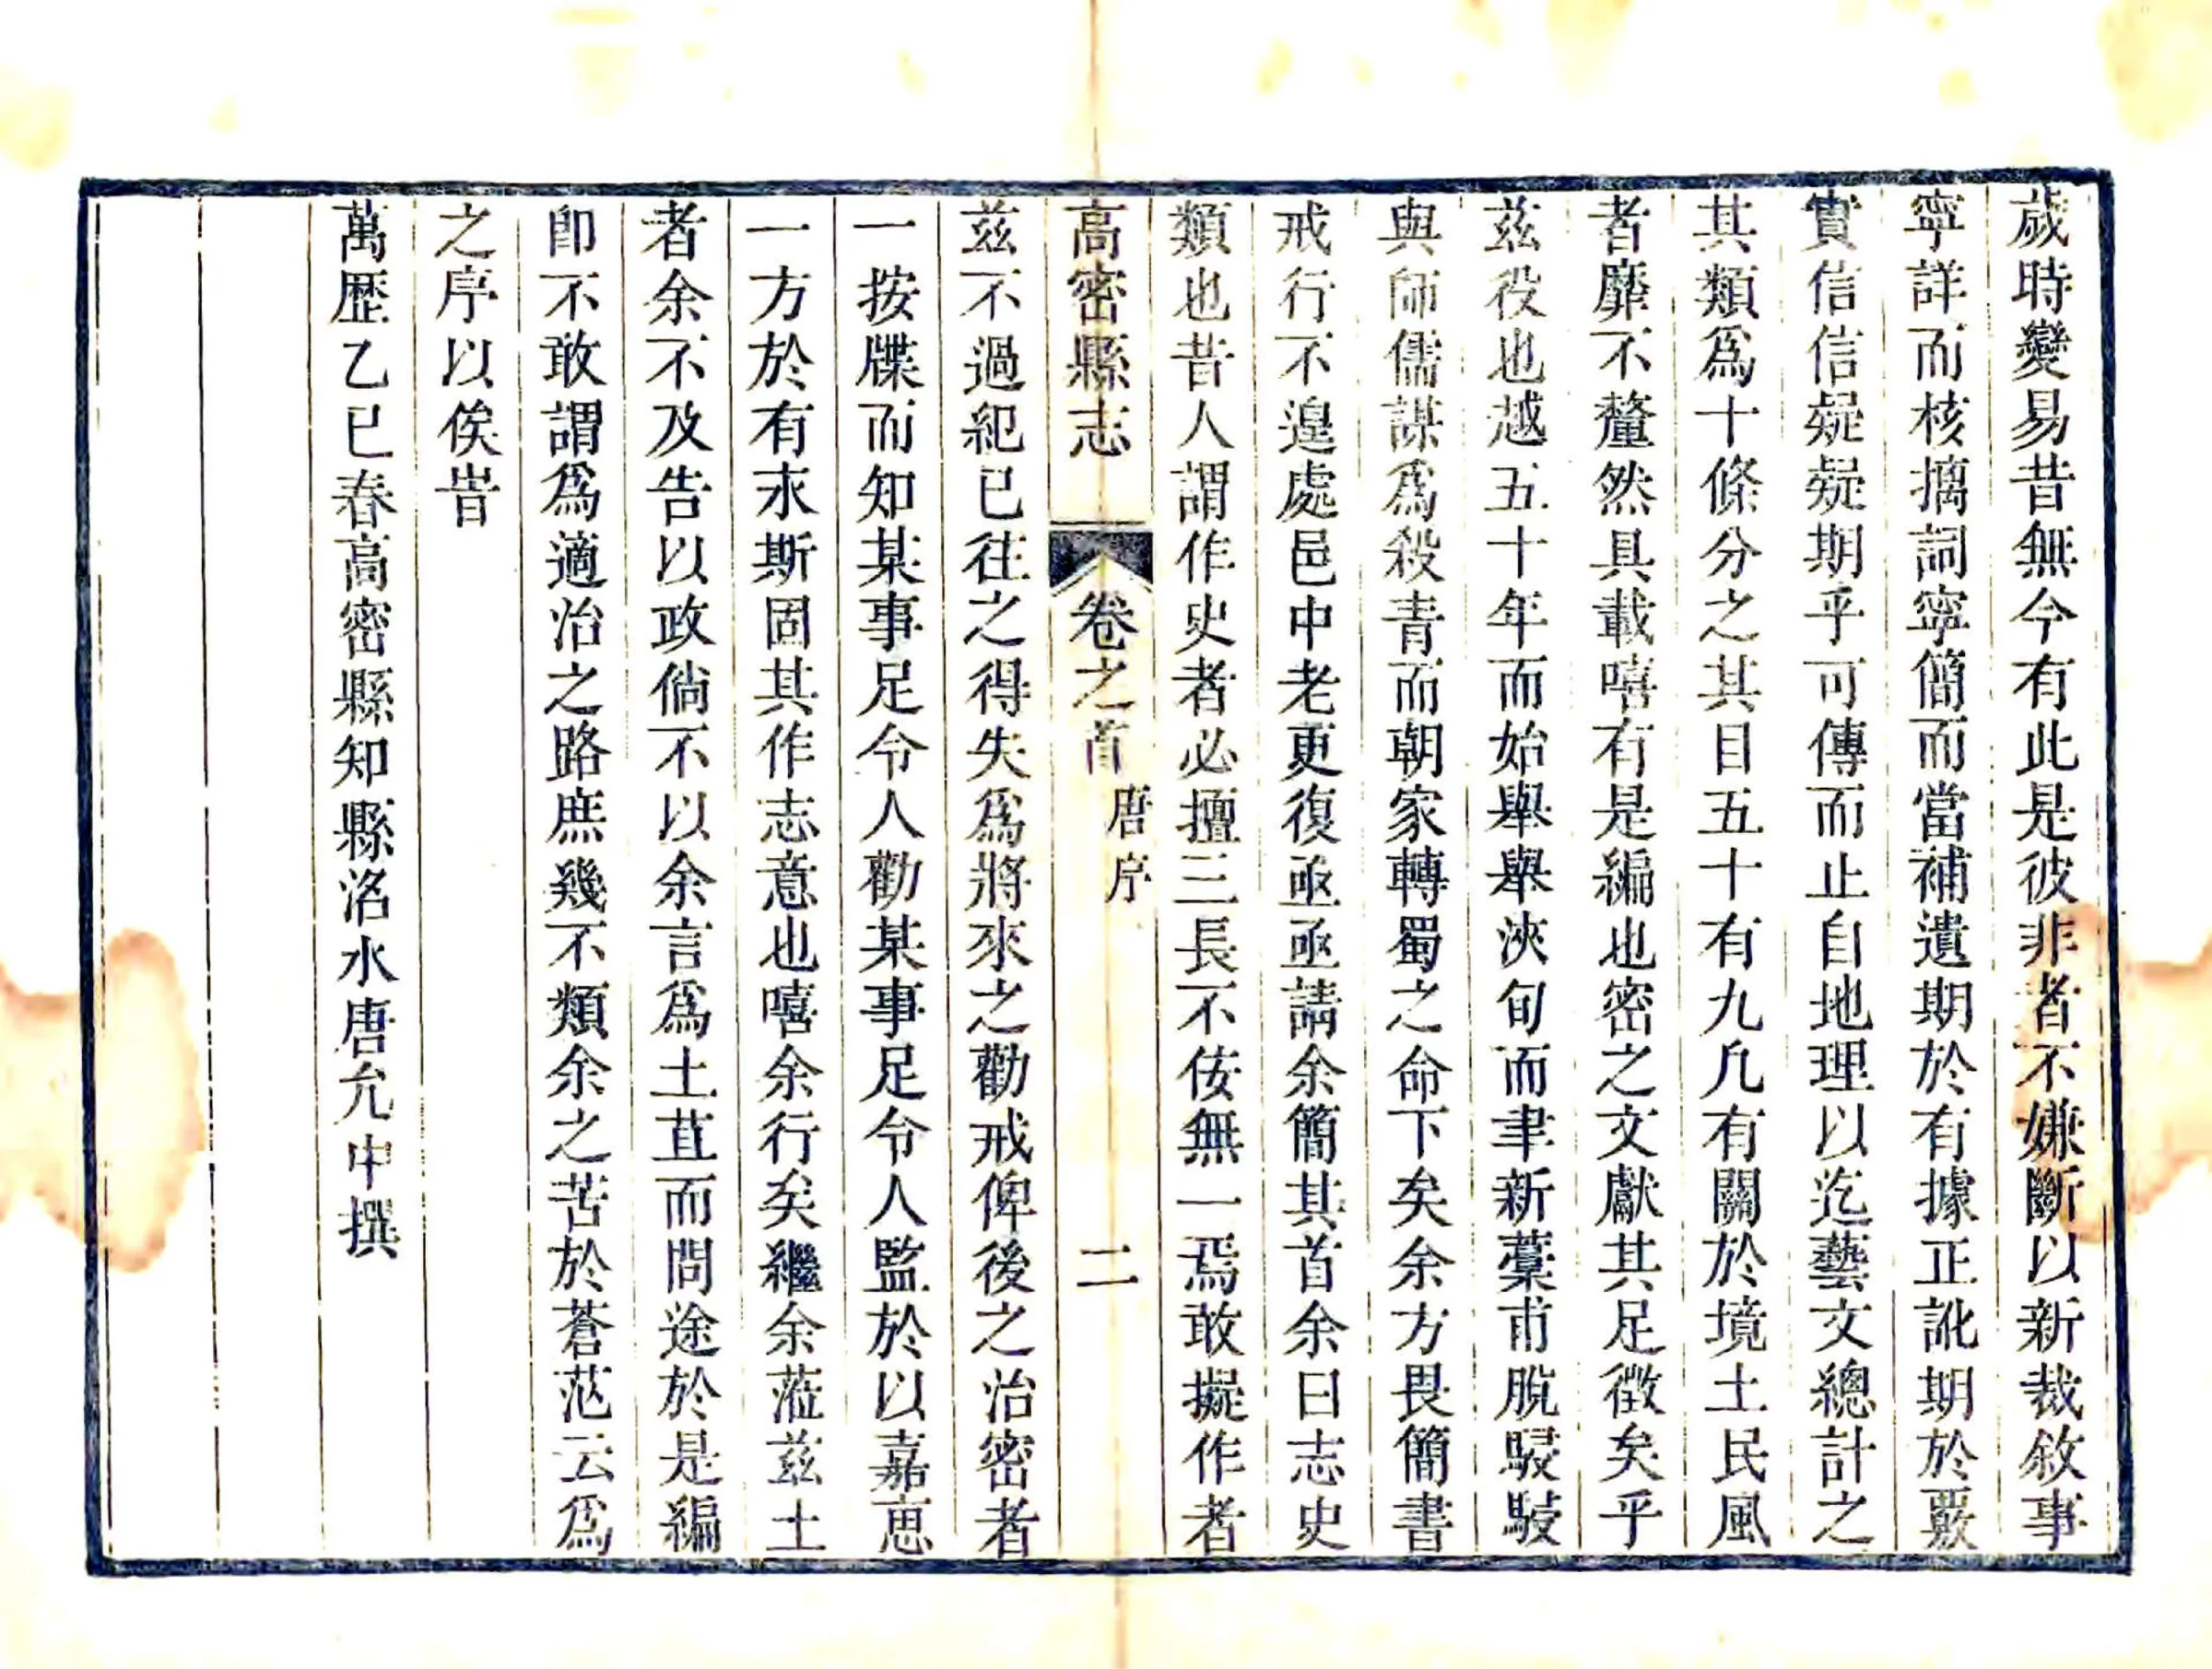 歲時變易昔無今有此是彼非者不嫌斷以新裁敘事
寧詳而核摛詞寧簡而當補遺期於有據正訛期於覈
實信信疑疑期乎可傳而止自地理以迄藝文總計之
其類爲十條分之其目五十有九凡有關於境土民風
者靡不釐然具載嘻有是編也密之文獻其足徵矣乎
茲役也越五十年而始舉舉浹旬而聿新藁甫脫駸駸
與師儒謀爲殺青而朝家轉蜀之命下矣余方畏簡書
戒行不遑處邑中老更復亟亟請余簡其首余曰志史
類也昔人謂作史者必擅三長不佞無一焉敢擬作者
高密縣志 卷之首 唐序 二
茲不過紀已往之得失爲將來之勸戒俾後之治密者
一按牒而知某事足令人勸某事足令人監於以嘉惠
一方於有永斯固其作志意也嘻余行矣繼余蒞茲土
者余不及告以政倘不以余言爲土苴而問途於是編
卽不敢謂爲適治之路庶幾不類余之苦於蒼茫云爲
之序以俟旹
萬歷乙巳春高密縣知縣洺水唐允中撰